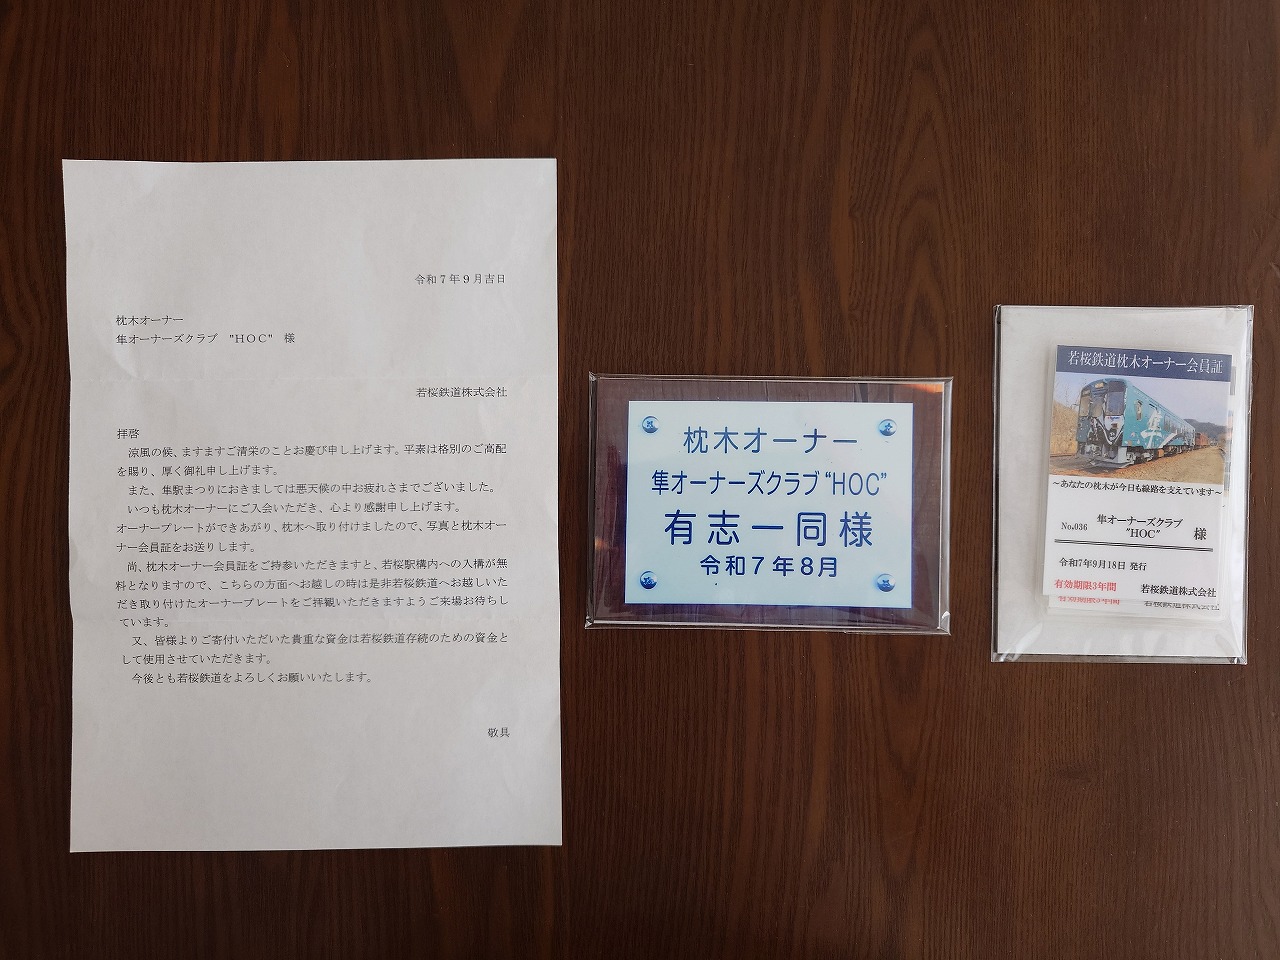 令和７年９月吉日
枕木オーナー
隼オーナーズクラブ　"ＨＯＣ"　様
若桜鉄道株式会社
拝啓
涼風の候、ますますご清栄のことお慶び申し上げます。平素は格別のご高配
を賜り、厚く御礼申し上げます。
また、隼駅まつりにおきましては悪天候の中お疲れさまでございました。
いつも枕木オーナーにご入会いただき、心より感謝申し上げます。
オーナープレートができあがり、枕木へ取り付けましたので、写真と枕木オー
ナー会員証をお送りします。
尚、枕木オーナー会員証をご持参いただきますと、若桜駅構内への入構が無
料となりますので、こちらの方面へお越しの時は是非若桜鉄道へお越しいた
だき取り付けたオーナープレートをご拝観いただきますようご来場お待ちし
ています。
又、皆様よりご寄付いただいた貴重な資金は若桜鉄道存続のための資金と
して使用させていただきます。
今後とも若桜鉄道をよろしくお願いいたします。
敬具
枕木オーナー
隼オーナーズクラブ“HOC”
有志一同様
令和７年８月
若桜鉄道枕木オーナー会員証
～あなたの枕木が今日も線路を支えています～
No.036　隼オーナーズクラブ
"HOC"　様
令和7年9月18日 発行
有効期限3年間　若桜鉄道株式会社
有効期限3年間　若桜鉄道株式会社